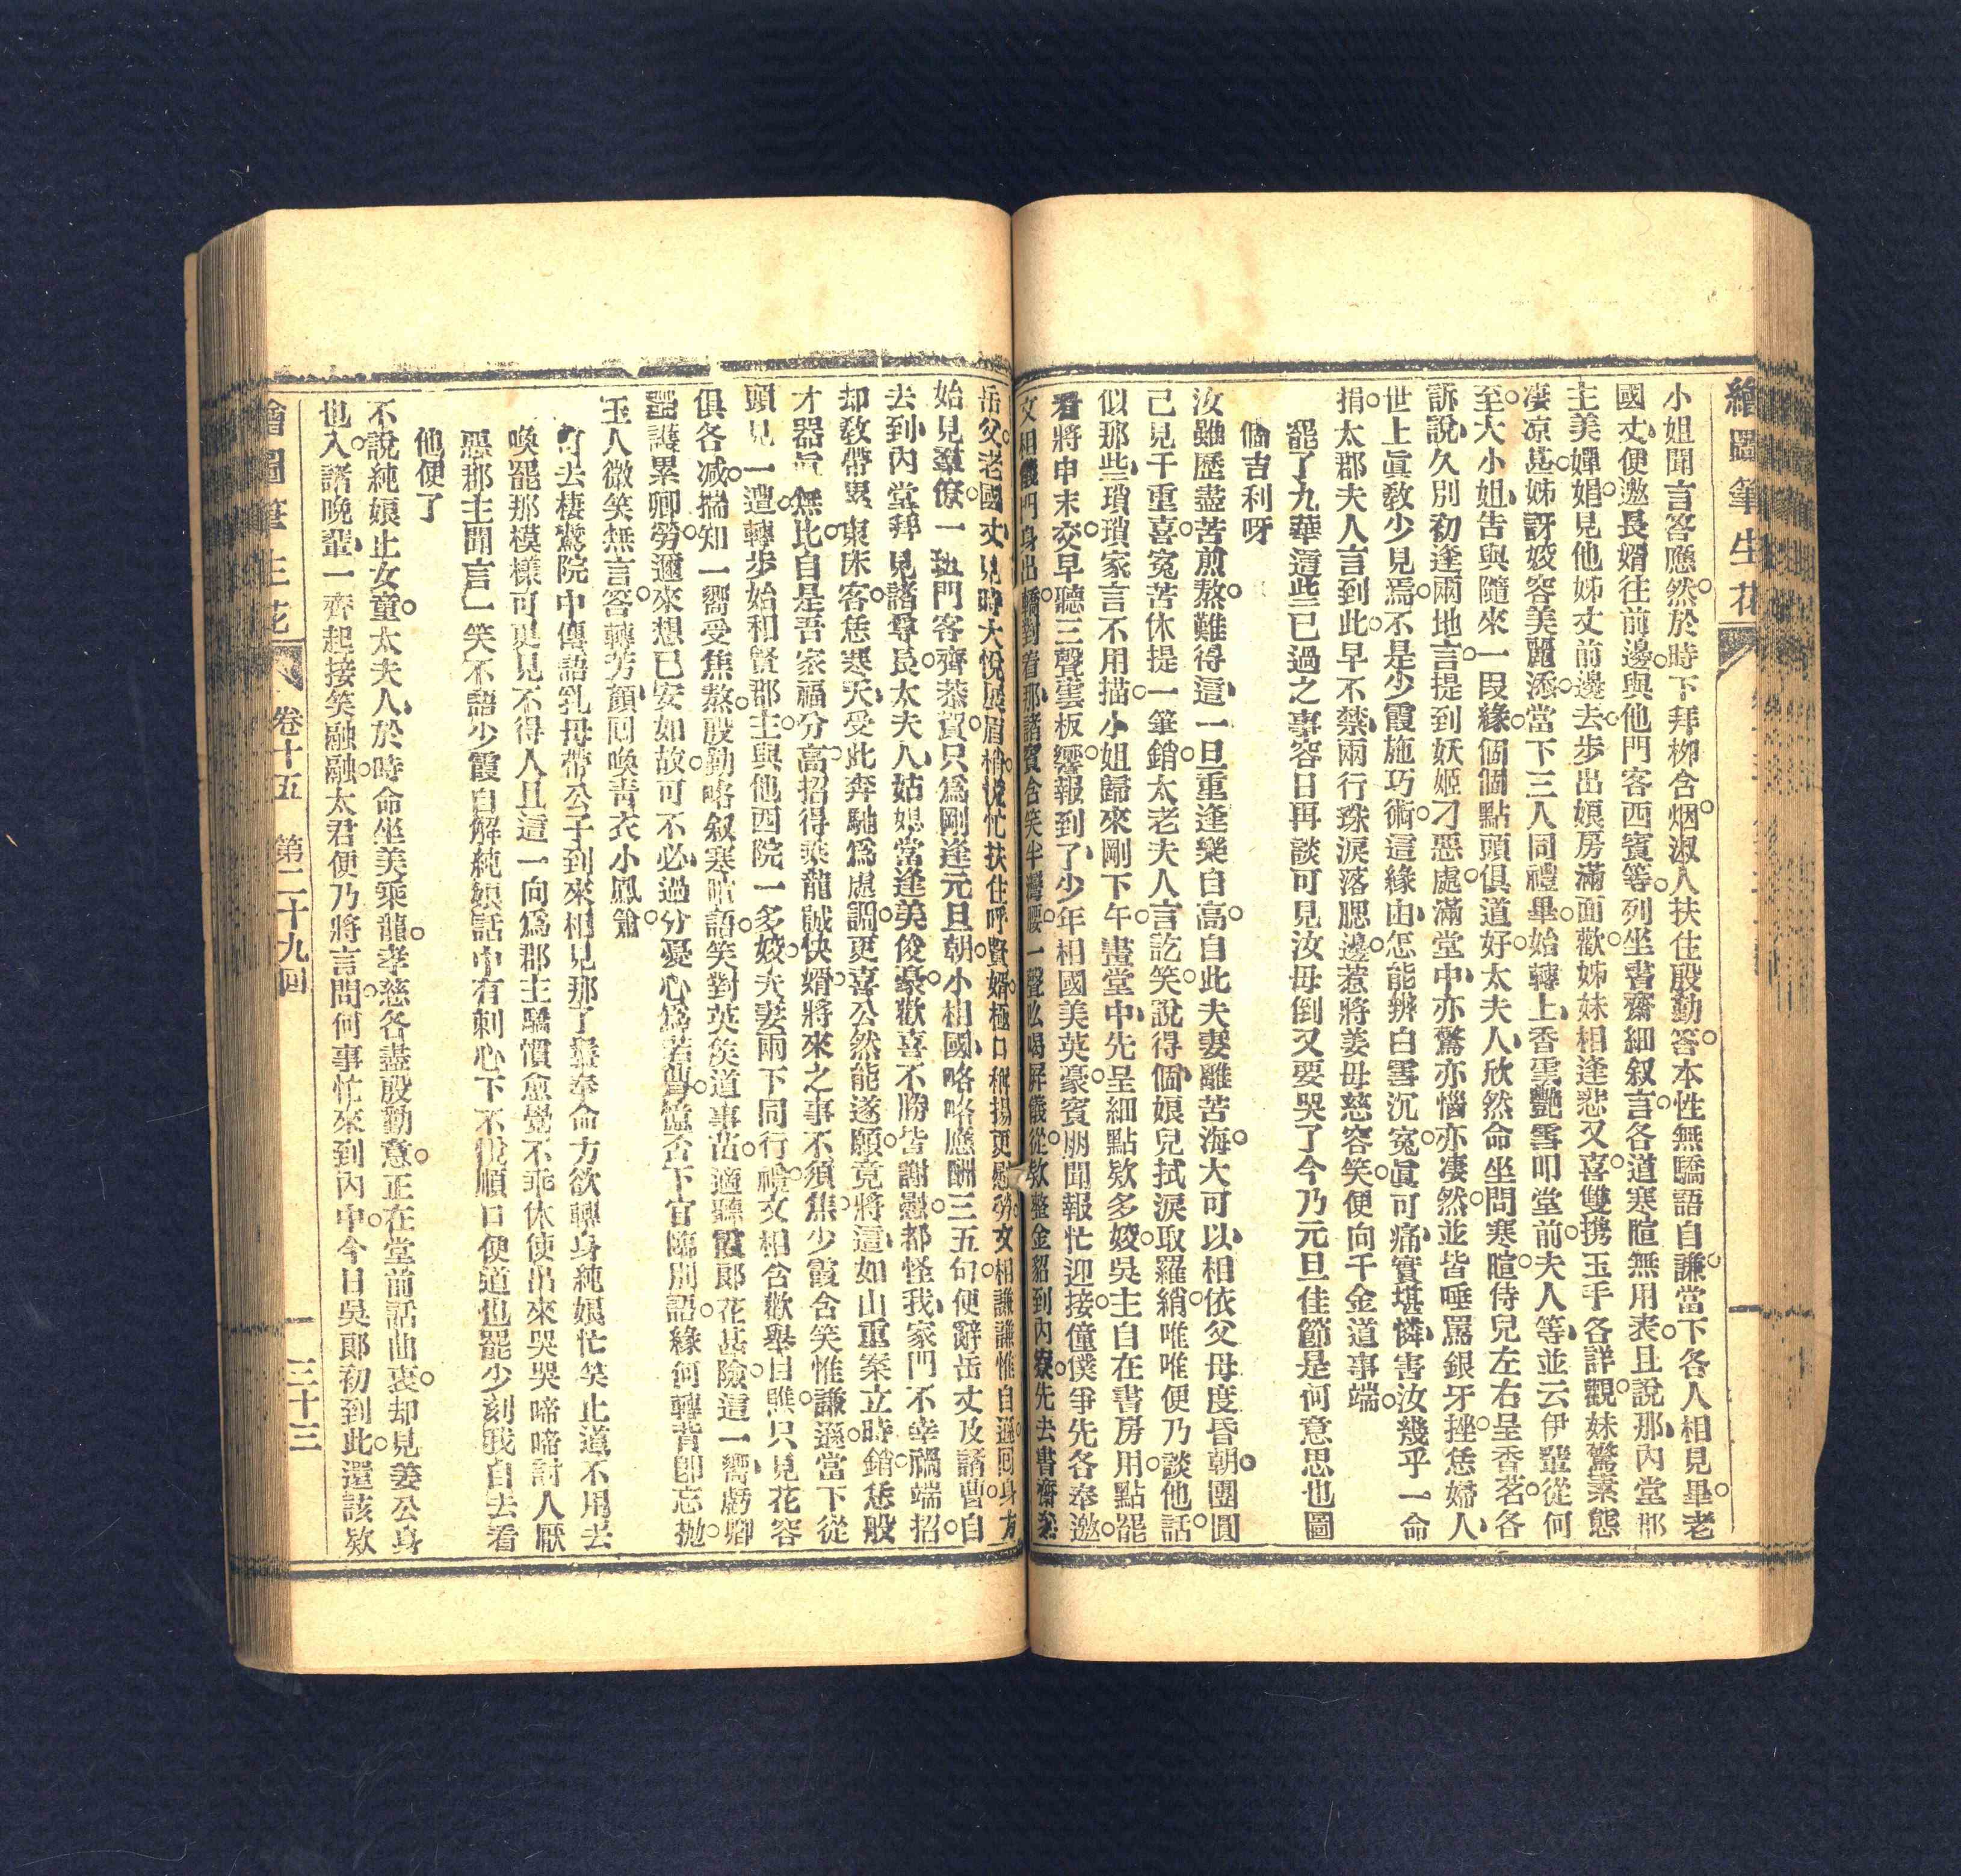 繪圖筆生花
小姐聞言答應然。於時下拜栁含烟。淑人扶住殷勤答。本性無驕語自謙。當下各人相見畢。老
國丈、便邀長婿往前邊。與他門客西賓等。列坐書齋細叙言。各道寒暄無用表。且說那、內堂郡
主美嬋娟。見他姊丈前邊去。步出娘房滿面歡。姊妹相逢悲又喜。雙携玉手各詳觀。妹驚素態
凄凉甚。姊訝姣容美麗添。當下三人同禮畢。始轉上、香雲艷雪叩堂前。夫人等、並云伊輩從何
至。大小姐、告與隨來一段緣。個個點頭俱道好。太夫人、欣然命坐問寒暄。侍兒左右呈香茗。各
訴說、久別初逢兩地言。提到妖姬刁惡處。滿堂中、亦驚亦惱亦凄然。並皆唾罵銀牙挫。恁婦人、
世上眞教少見焉。不是少霞施巧術。這緣由、怎能辨白雪沉寃。眞可痛、實堪憐、害汝幾乎一命
捐。太郡夫人言到此。早不禁、兩行珠淚落腮邊。惹將姜母慈容笑。便向千金道事端。
罷了九華這些已過之事容日再談可見汝母倒又要哭了今乃元旦佳節是何意思也圖
個吉利呀
汝雖歷盡苦煎熬。難得這、一旦重逢樂自高。自此夫妻離苦海。大可以、相依父母度昏朝。團圓
已見千重喜。寃苦休提一筆銷。太老夫人言訖笑。說得個、娘兒拭淚取羅綃。唯唯便乃談他話。
似那些、瑣瑣家言不用描。小姐歸來剛下午。畫堂中、先呈細點欵多姣。吳主自在書房用。點罷
看將申末交。早聽三聲雲板響。報到了、少年相國美英豪。賓朋聞報忙迎接。僮僕爭先各奉邀。
文相儀門身出轎。對着那、諸賓含笑半灣腰。一聲吆喝屏儀從。欸整金貂到內寮。先去書齋叅
岳父。老國丈、見時大悅展眉梢。說忙扶住呼賢婿。極口稱揚更慰勞。文相謙謙惟自遜。回身方
始見羣僚。一班門客齊恭賀。只爲剛逢元旦朝。小相國、略略應酬三五句。便辭岳丈及諸曹。自
去到、內堂拜見諸尊長。太夫人、姑媳當逢美俊豪。歡喜不勝皆謝慰。都怪我、家門不幸禍端招。
却敎帶累東床客。恁寒天、受此奔馳爲處調。更喜公然能遂願。竟將這、如山重案立時銷。恁般
才器眞無比。自是吾家福分高。招得乘龍誠快婿。將來之事不須焦。少霞含笑惟謙遜。當下從
頭見一遭。轉步始和賢郡主。與他西院一多姣。夫妻兩下同行禮。文相含歡舉目瞧。只見花容
俱各减。揣知一嚮受焦熬。殷勤略叙寒暄語。笑對英筊道事苗。適聽霞郞花甚險。這一嚮、虧卿
噐護累卿勞。邇來想已安如故。可不必、過分憂心爲若曹。憶否下官臨別語。緣何轉背卽忘抛。
玉人微笑無言答。轉芳顏、回喚靑衣小鳳簫。
可去棲鸞院中傳語乳母帶公子到來相見那丫鬟奉命方欲轉身純娘忙笑止道不用去
喚罷那模樣可更見不得人且這一向爲郡主驕慣愈覺不乖休使出來哭哭啼啼討人厭
惡郡主聞言一笑不語少霞自解純娘話中有刺心下不悅順口便道也罷少刻我自去看
他便了
不說純娘止女童。太夫人、於時命坐美乘龍。孝慈各盡殷勤意。正在堂前話曲衷。却見姜公身
也入。諸晚輩、一齊起接笑融融。太君便乃將言問。何事忙來到內中。今日吳郞初到此。還該欵
繪圖筆生花 卷十五 第二十九回 三十三